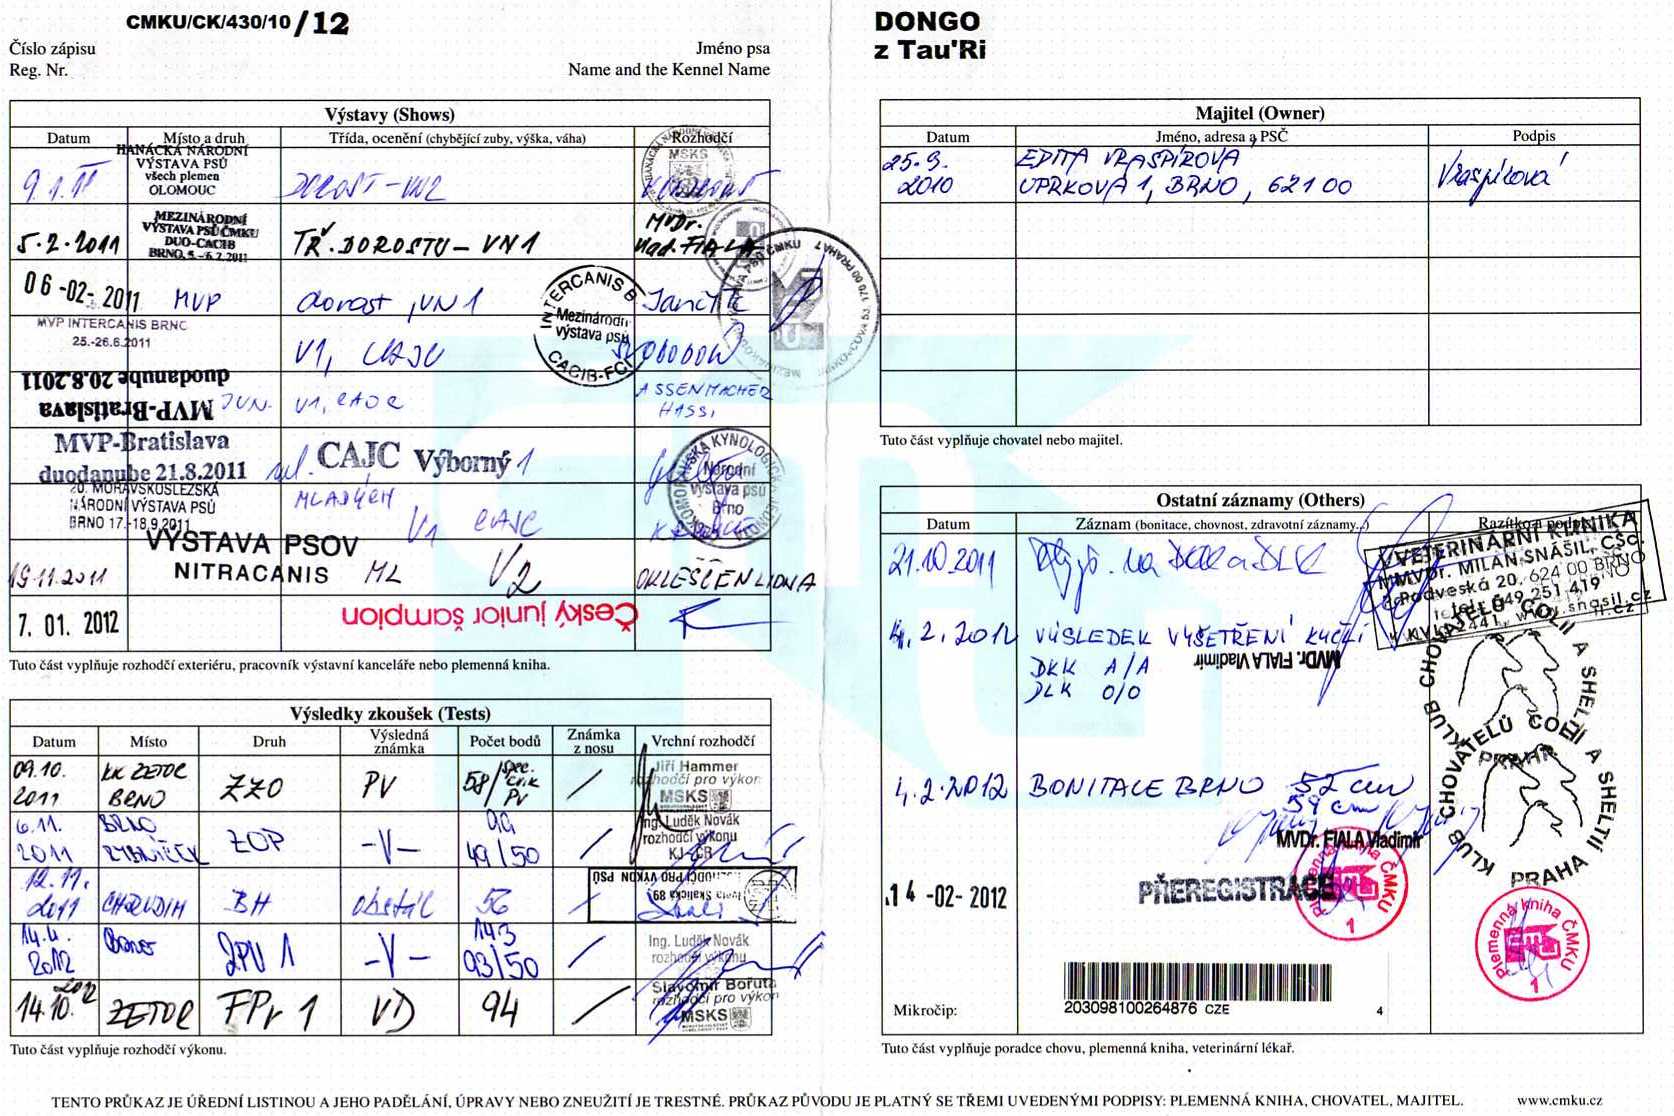 CMKU/CK/430/10 /12
Číslo zápisu
Reg. Nr.
Jméno psa
Name and the Kennel Name
DONGO
z Tau'Ri
Výstavy (Shows)
Datum Místo a druh Třída, ocenění (chybějící zuby, výška, váha) Rozhodčí
HANÁCKÁ NÁRODNÍ
VÝSTAVA PSŮ
všech plemen
OLOMOUC
9.1.11
MSKS
MEZINÁRODNÍ
VÝSTAVA PSŮ ČMKU
DUO-CACIB
BRNO, 5.-6.2.2011
5.2.2011 TŘ. DOROSTU - VN1 MVDr. Vlad. FIALA
06 -02- 2011 MVP dorost, VN 1
INTERCANIS B
Mezinárodní
výstava psů
CACIB-FCI
MVP INTERCANIS BRNO
25.-26.6.2011
V1, CAJC
MVP-Bratislava
duodanube 20.8.2011
JUN. V1, CAJC ASSENMACHER
HASSI
MVP-Bratislava
duodanube 21.8.2011
CAJC Výborný 1
20. MORAVSKOSLEZSKÁ
NÁRODNÍ VÝSTAVA PSŮ
BRNO 17.-18.9.2011
MLADÝCH V1 CAJC
Národní
výstava psů
Brno
VÝSTAVA PSOV
NITRACANIS
19.11.2011 ML V2
7. 01. 2012 Český junior šampion
Tuto část vyplňuje rozhodčí exteriéru, pracovník výstavní kanceláře nebo plemenná kniha.
Výsledky zkoušek (Tests)
Datum Místo Druh Výsledná známka Počet bodů Známka z nosu Vrchní rozhodčí
09.10. 2011 KK ZETOR BRNO ZZO PV 58/ /
Jiří Hammer
rozhodčí pro výkon
MSKS
6.11. 2011 BRNO ZOP -V- 49/50 /
Ing. Luděk Novák
rozhodčí výkonu
KJ ČR
12.11. 2011 CHRUDIM BH obstál 56 /
ROZHODČÍ PRO VÝKON PSŮ
14.4. 2012 Brno ZPV 1 -V- 143 93/50 /
Ing. Luděk Novák
rozhodčí výkonu
14.10. 2012 ZETOR FPr 1 VD 94 /
Slavomír Bořuta
rozhodčí pro výkon
MSKS
Tuto část vyplňuje rozhodčí výkonu.
Majitel (Owner)
Datum Jméno, adresa a PSČ Podpis
25.9. 2010 EDITA VRASPÍROVÁ Vraspírová
UPRKOVA 1, BRNO, 621 00
Tuto část vyplňuje chovatel nebo majitel.
Ostatní záznamy (Others)
Datum Záznam (bonitace, chovnost, zdravotní záznamy...) Razítko a podpis
21.10.2011 na DKK a DLK
VETERINÁRNÍ KLINIKA
MVDr. MILAN SNÁŠIL, CSc.
Podveská 20, 624 00 BRNO
4.2.2012 VÝSLEDEK VYŠETŘENÍ KYČLÍ
DKK A/A
DLK 0/0
MVDr. FIALA Vladimír
KLUB CHOVATELŮ COLIÍ A SHELTIÍ
PRAHA
4.2.2012 BONITACE BRNO 52 cm
54 cm
MVDr. FIALA Vladimír
KLUB CHOVATELŮ COLIÍ A SHELTIÍ
PRAHA
14 -02- 2012 PŘEREGISTRACE
Plemenná kniha ČMKU
1
Plemenná kniha ČMKU
1
Mikročip: 203098100264876 CZE 4
Tuto část vyplňuje poradce chovu, plemenná kniha, veterinární lékař.
TENTO PRŮKAZ JE ÚŘEDNÍ LISTINOU A JEHO PADĚLÁNÍ, ÚPRAVY NEBO ZNEUŽITÍ JE TRESTNÉ. PRŮKAZ PŮVODU JE PLATNÝ SE TŘEMI UVEDENÝMI PODPISY: PLEMENNÁ KNIHA, CHOVATEL, MAJITEL. www.cmku.cz